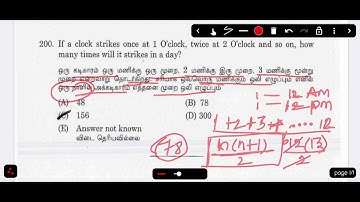 200. If a clock strikes once at 1 O'clock, twice at 2 O'clock and so on, how
many times will it strikes in a day?
ஒரு கடிகாரம் ஒரு மணிக்கு ஒரு முறை, 2 மணிக்கு இரு முறை, 3 மணிக்கு மூன்று
முறை
எனில்
ஒரு நாளில் அக்கடிகாரம் எத்தனை முறை ஒலி எழுப்பும்
(A) 48
(B) 78
156
(D) 300
(E) Answer not known
விடை தெரியவில்லை
1 — 12 AM
1 — 12 pm
1+2+3+ ..... 12
78
n(n+1)
2
12(13)
2
page 9/1